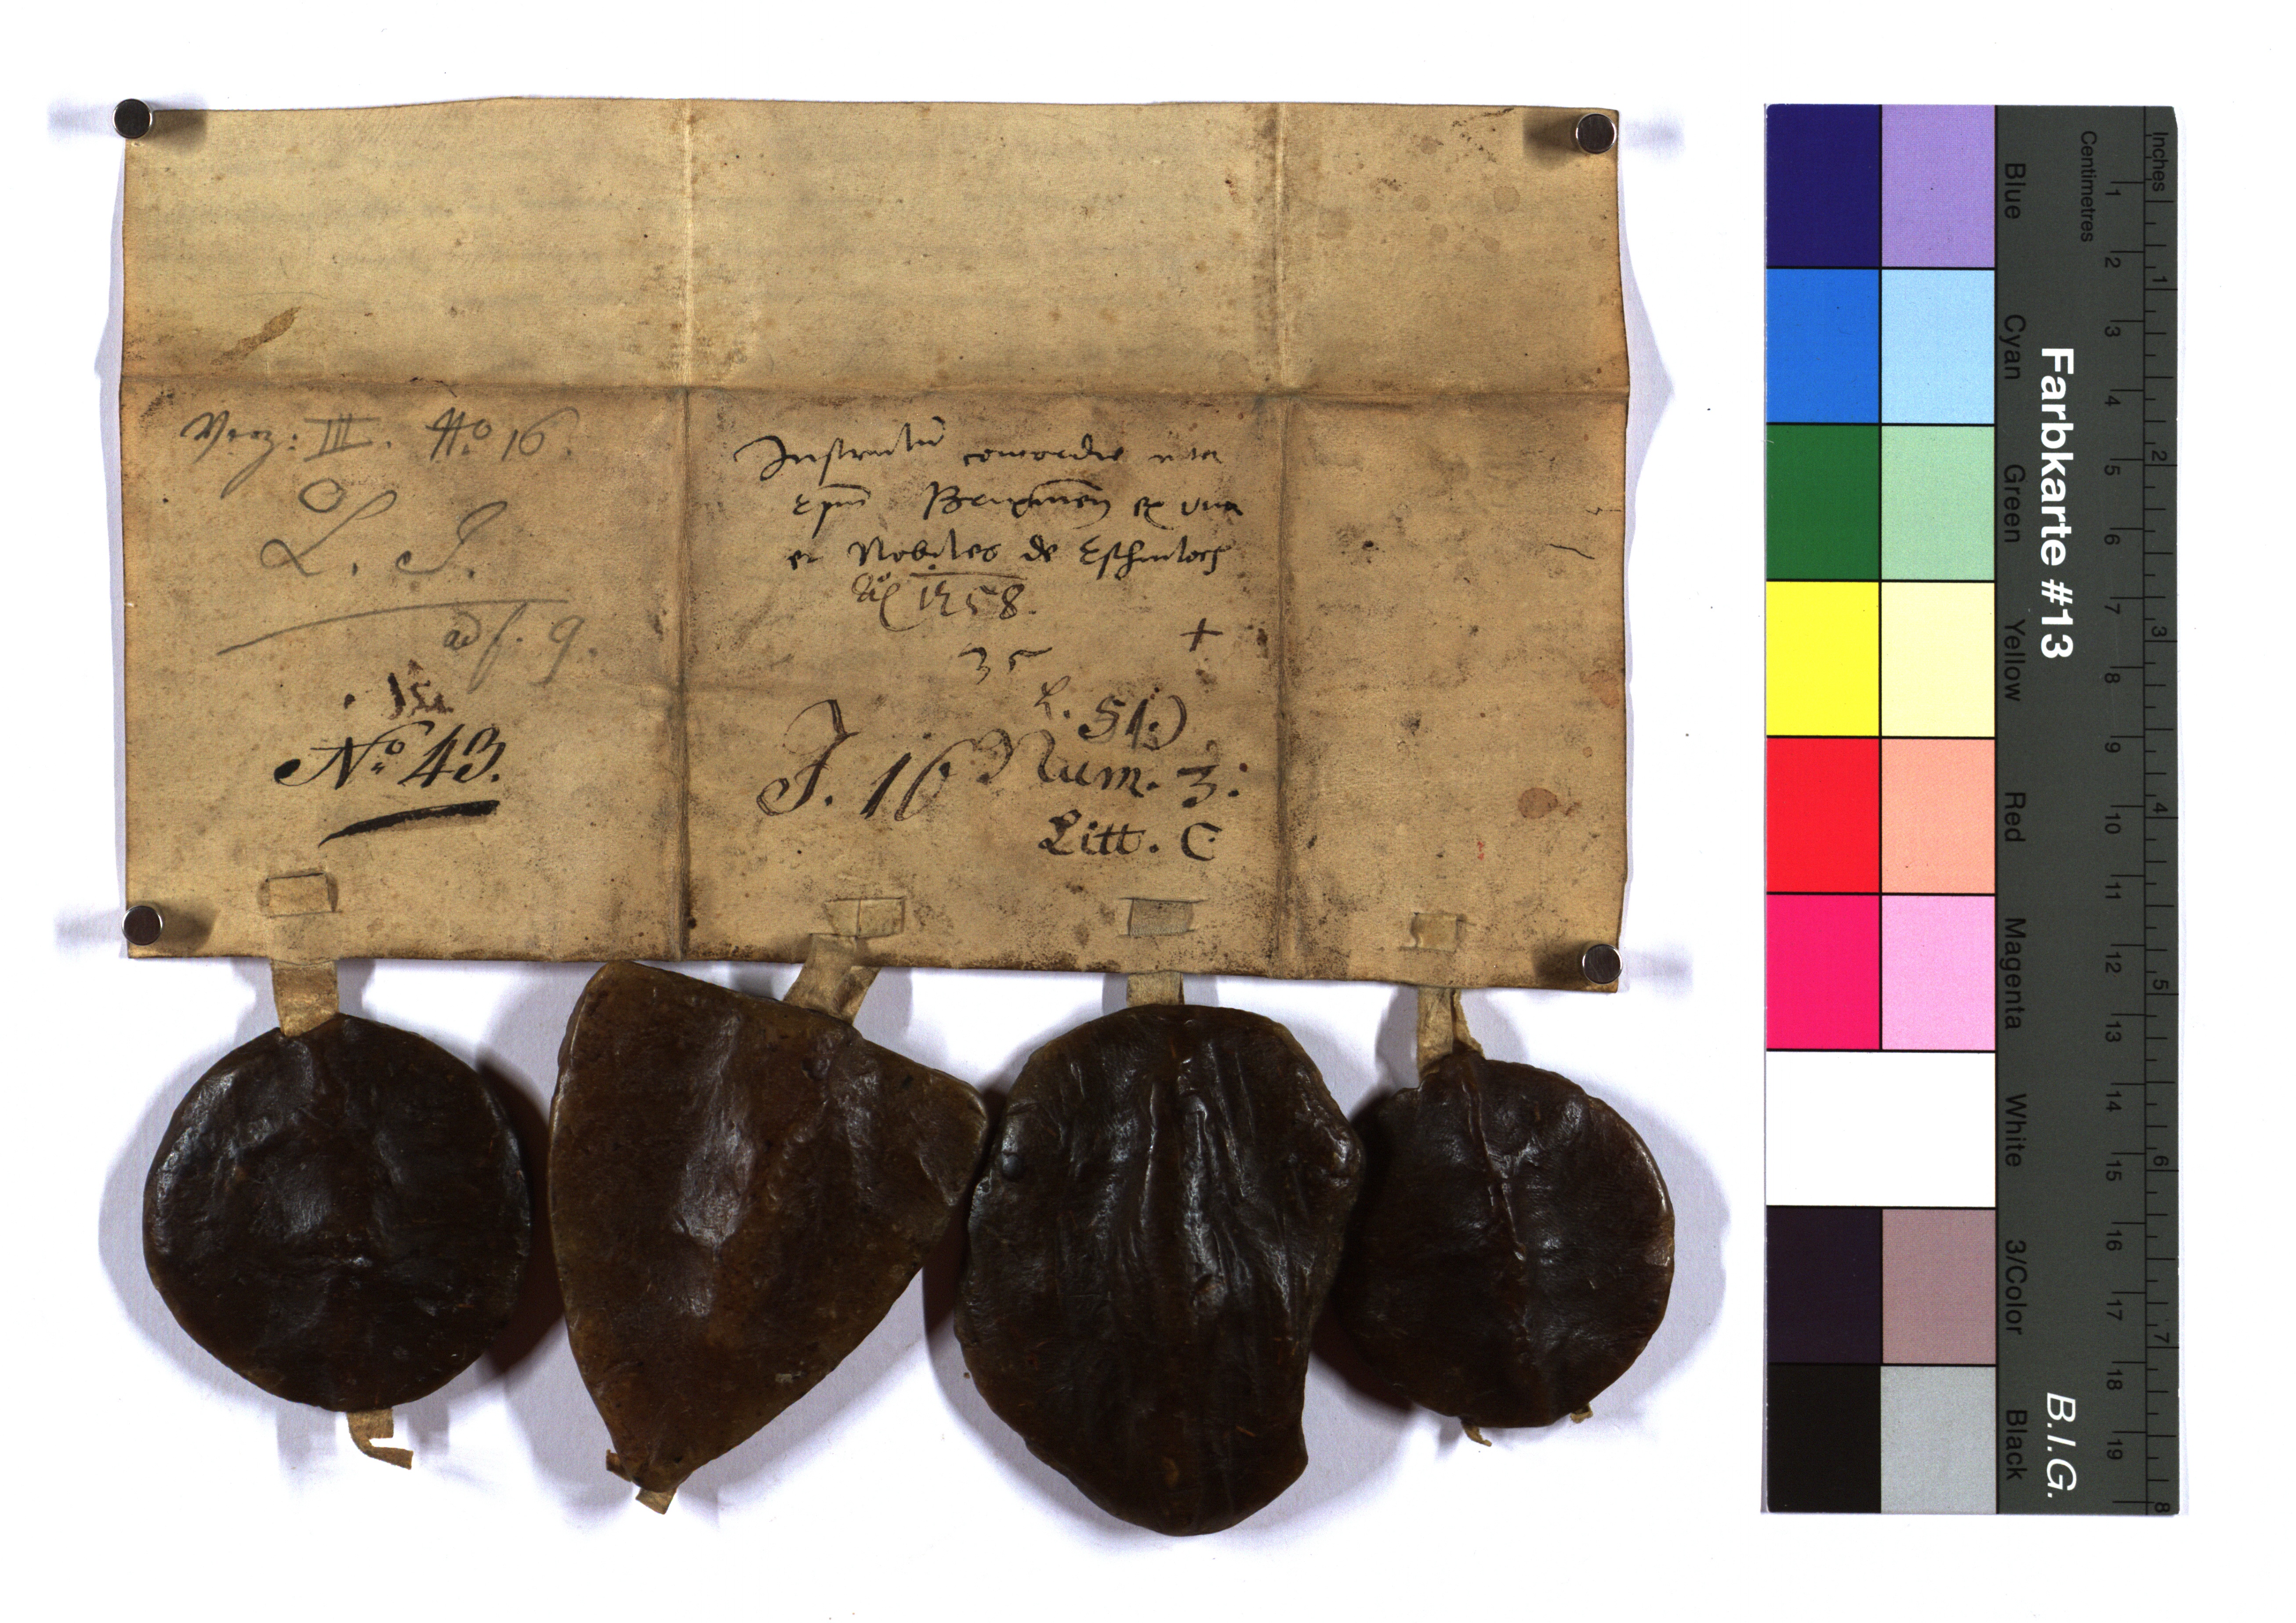 Verz: III. No 16.
L. J.
ad f. 9.
No 43.
Instrumtū concordie inter
Epm̄ Brixineñ ex una
et Nobiles de Eschenloch
Aō 1258.
35
+
L. 51.)
J. 16 Num. 3:
Litt. C
Farbkarte #13
B.I.G.
Inches
Centimetres
1 2 3 4 5 6 7 8 9 10 11 12 13 14 15 16 17 18 19
1 2 3 4 5 6 7 8
Blue
Cyan
Green
Yellow
Red
Magenta
White
3/Color
Black